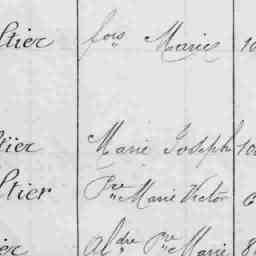 ltier fois Marie 10
tier Marie Joseph 10
ltier Pre Marie Victor 6
ier Aldre Pre Marie 8